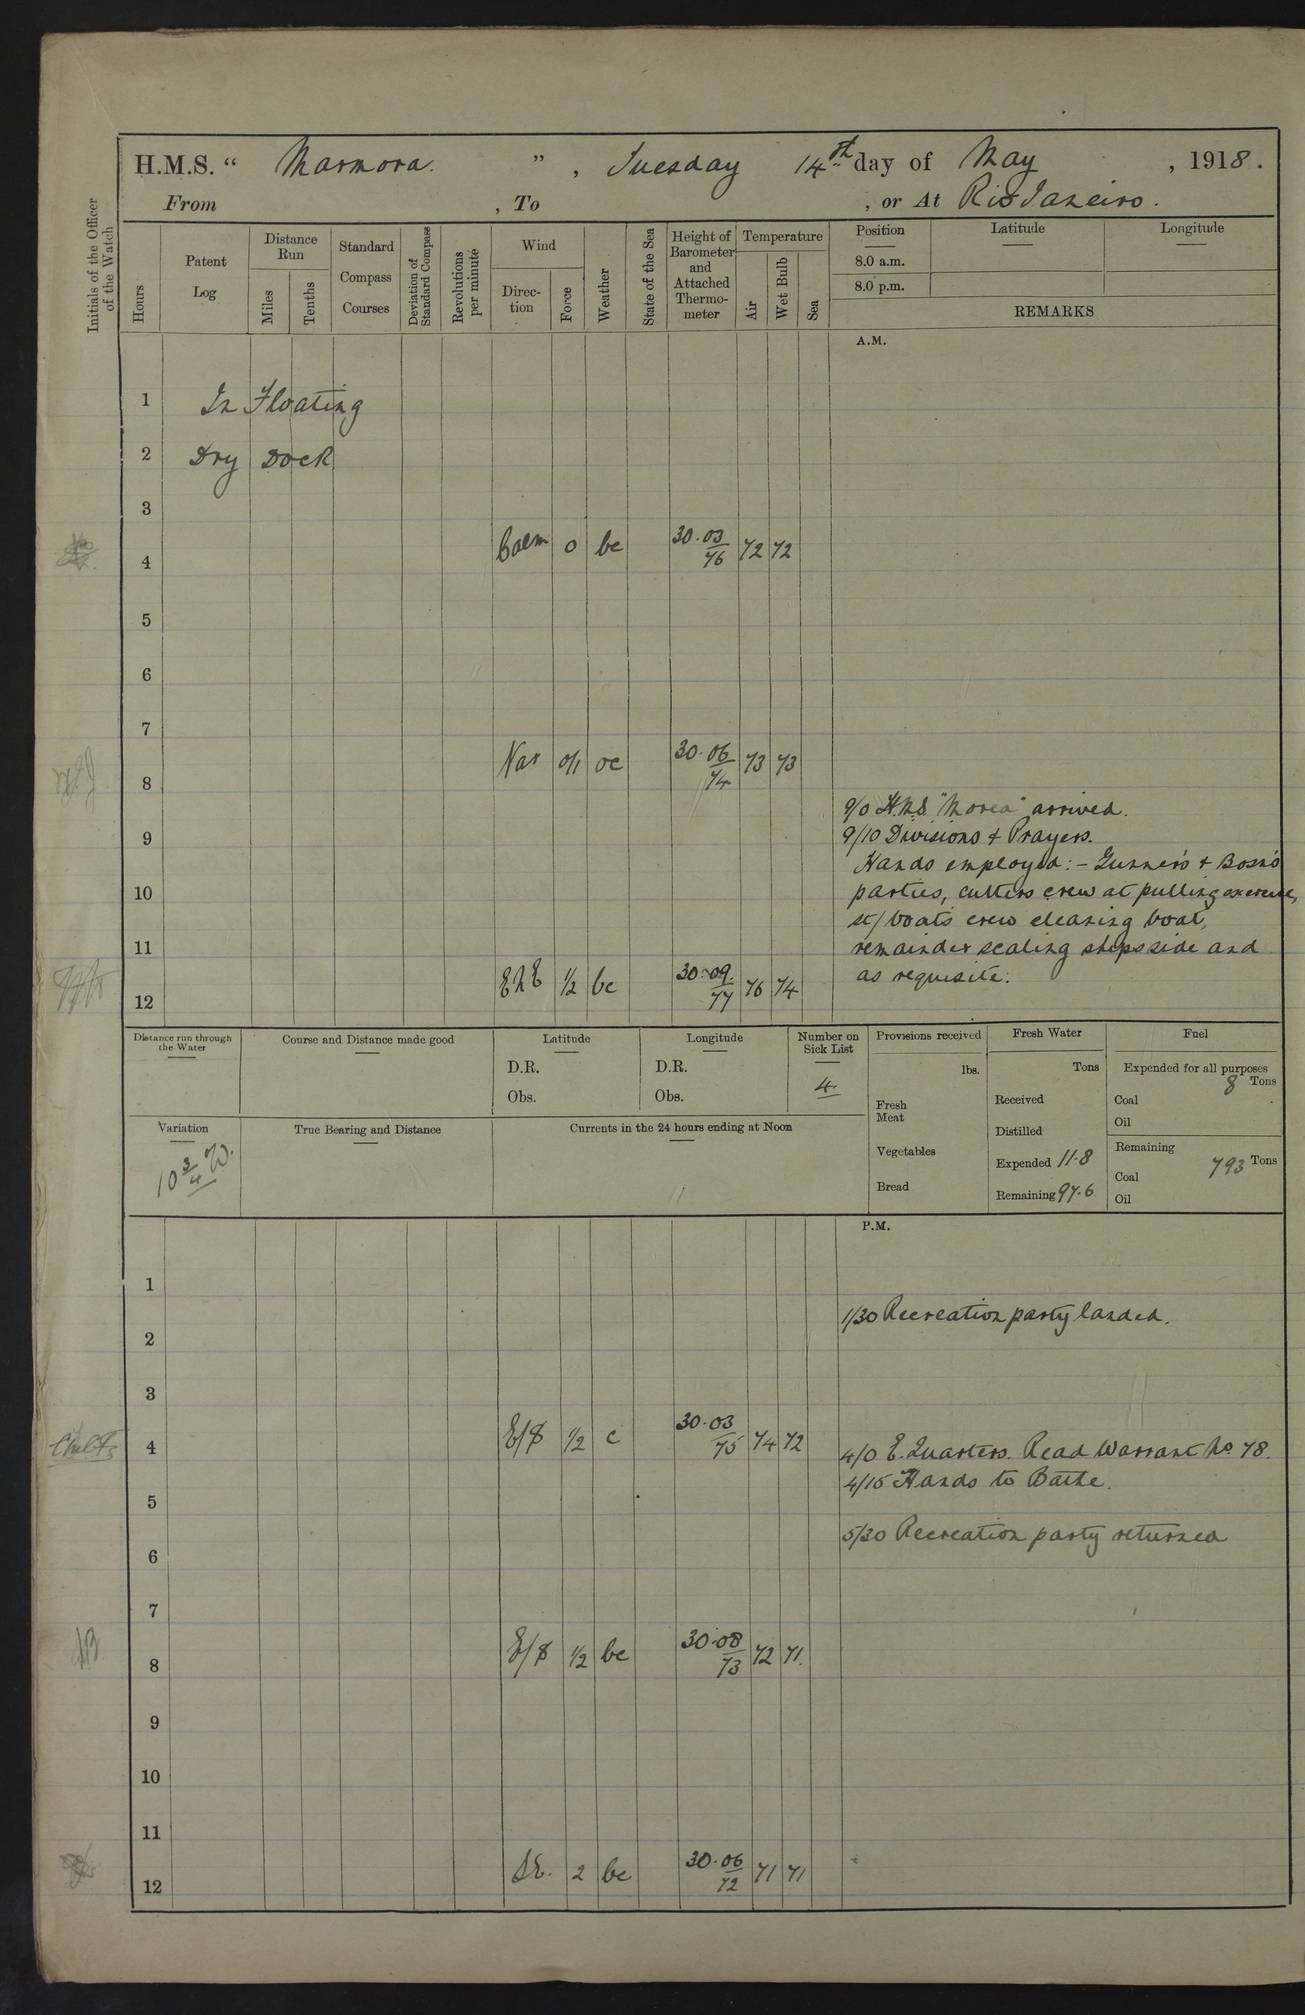 H.M.S. " Marmora. ", Tuesday 14th day of May, 1918.
From , To , or At Rio Janeiro.
Initials of the Officer of the Watch
Hours
Patent Log
Distance Run
Miles
Tenths
Standard Compass Courses
Deviation of Standard Compass
Revolutions per minute
Wind
Direction
Force
Weather
State of the Sea
Height of Barometer and Attached Thermometer
Temperature
Air
Wet Bulb
Sea
Position
8.0 a.m.
8.0 p.m.
Latitude
Longitude
REMARKS
A.M.
1 In Floating
2 Dry Dock
3
4 Calm 0 bc 30.03/76 72 72
5
6
7
8 Var 0/1 oc 30.06/74 73 73
9/0 H.M.S. "Morea" arrived.
9
9/10 Divisions & Prayers.
Hands employed:- Gunner's & Bosn's
10 parties, cutters crew at pulling exercise,
st/boats crew cleaning boat,
11 remainder scaling ships side and
as requisite.
12 ENE 1/2 bc 30.09/77 76 74
Distance run through the Water
Course and Distance made good
Latitude
D.R.
Obs.
Longitude
D.R.
Obs.
Number on Sick List
4
Provisions received
lbs.
Fresh Meat
Vegetables
Bread
Fresh Water
Tons
Received
Distilled
Expended 11.8
Remaining 97.6
Fuel
Expended for all purposes
8 Tons
Coal
Oil
Remaining
793 Tons
Coal
Oil
Variation
10 3/4 W.
True Bearing and Distance
Currents in the 24 hours ending at Noon
P.M.
1
1/30 Recreation party landed.
2
3
4 E/S 1/2 c 30.03/75 74 72 4/0 E. Quarters. Read Warrant No. 78.
4/15 Hands to Bathe.
5
5/30 Recreation party returned
6
7
8 E/S 1/2 bc 30.08/73 72 71
9
10
11
12 SE. 2 bc 30.06/72 71 71